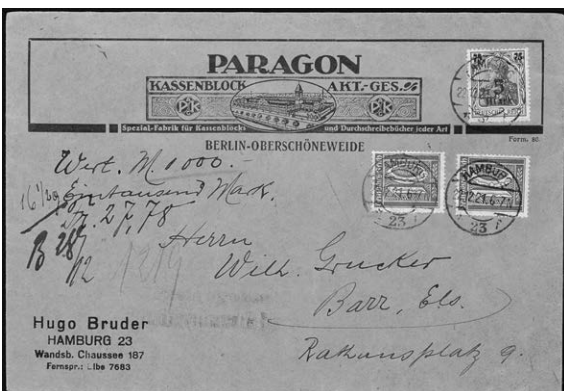 PARAGON
KASSENBLOCK AKT.-GES.
Spezial-Fabrik für Kassenblocks und Durchschreibebücher jeder Art
BERLIN-OBERSCHÖNEWEIDE
Form. 80.
HAMBURG
22.12.21.6-7
23
HAMBURG
22.12.21.6-7
23
Wert. M. 1000.-
Eintausend Mark.
27,78
Herrn
Wilh. Grucker
Barr, Els.
9.
Hugo Bruder
HAMBURG 23
Wandsb. Chaussee 187
Fernspr.: Elbe 7683